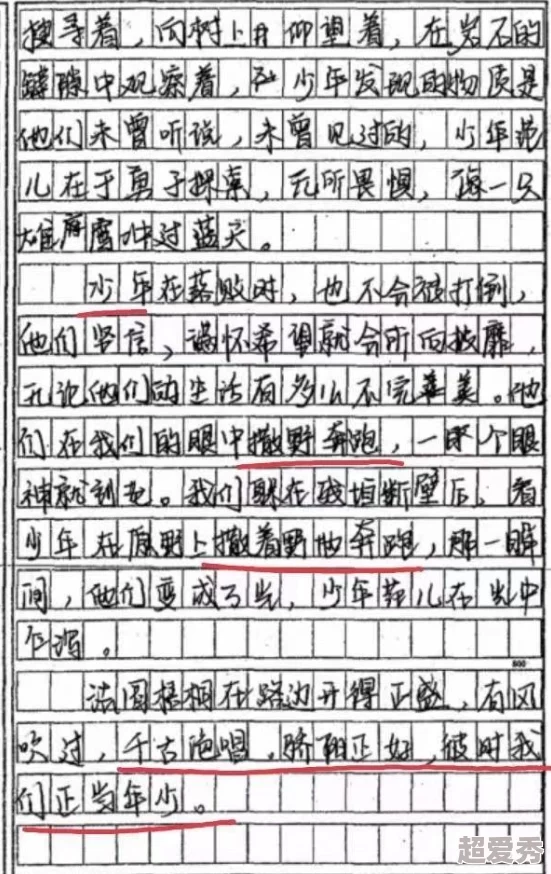 搜寻着，向树上#仰望着，在岩石的
罅隙中观察着，少年发现的物质是
他们未曾听说，未曾见过的，少年范
儿在于勇于探索，无所畏惧，像一只
雄鹰冲过蓝天。
少年在落败时，也不会被打倒，
他们坚信，满怀希望就会所向披靡，
无论他们的生活有多么不完美。他
们在我们的眼中撒野奔跑，一个眼
神就。我们躲在残垣断壁后，看
少年在原野上撒着野地奔跑，那一瞬
间，他们变成了光，少年范儿在光中
乍泻。
800
法国梧桐在路边开得正盛，有风
吹过，千古绝唱，骄阳正好，彼时我
们正当年少。
超爱秀